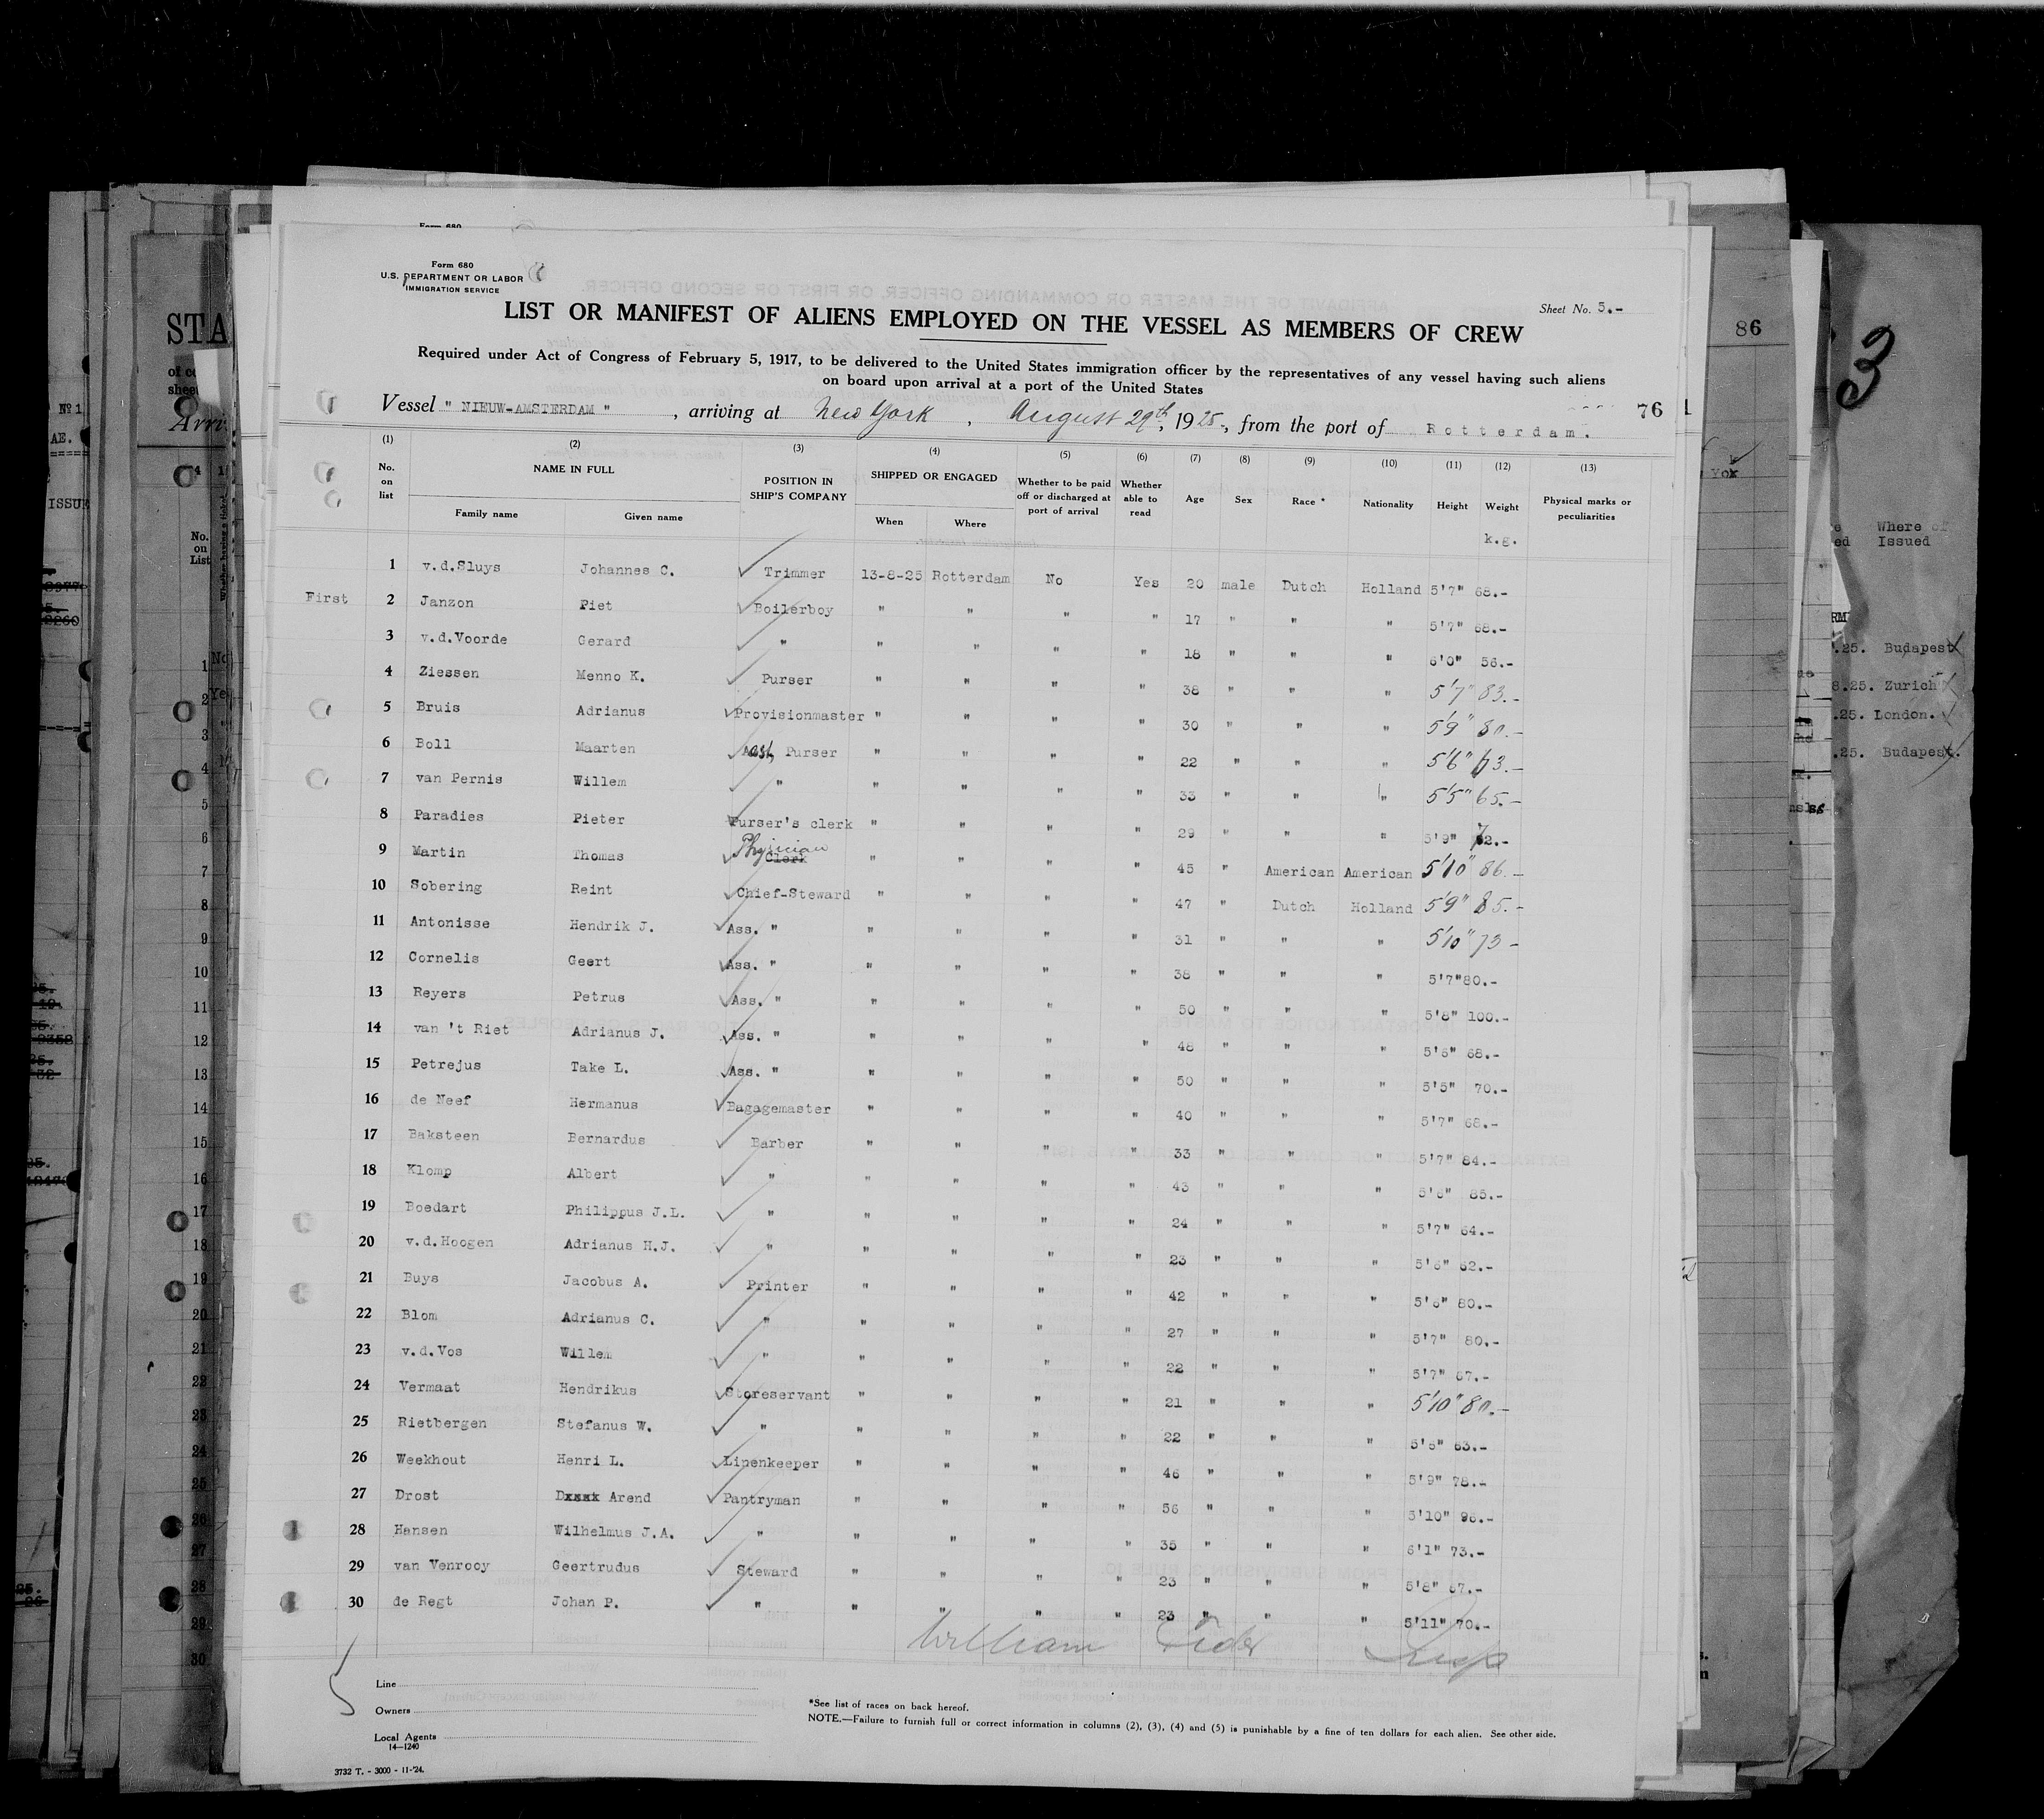 Form 680
U.S. DEPARTMENT OR LABOR
IMMIGRATION SERVICE
Sheet No. 5.-
LIST OR MANIFEST OF ALIENS EMPLOYED ON THE VESSEL AS MEMBERS OF CREW
Required under Act of Congress of February 5, 1917, to be delivered to the United States immigration officer by the representatives of any vessel having such aliens
on board upon arrival at a port of the United States
76
Vessel " NIEUW-AMSTERDAM " , arriving at New York , August 29th, 1925, from the port of Rotterdam.
(1) (2) (3) (4) (5) (6) (7) (8) (9) (10) (11) (12) (13)
No. on list NAME IN FULL Family name Given name POSITION IN SHIP'S COMPANY SHIPPED OR ENGAGED When Where Whether to be paid off or discharged at port of arrival Whether able to read Age Sex Race * Nationality Height Weight Physical marks or peculiarities
k.g.
1 v.d.Sluys Johannes C. Trimmer 13-8-25 Rotterdam No Yes 20 male Dutch Holland 5'7" 68.-
First 2 Janzon Piet Boilerboy " " " " 17 " " " 5'7" 68.-
3 v.d.Voorde Gerard " " " " " 18 " " " 6'0" 56.-
4 Ziessen Menno K. Purser " " " " 38 " " " 5'7" 83.-
5 Bruis Adrianus Provisionmaster " " " " 30 " " " 5'9" 80.-
6 Boll Maarten Asst. Purser " " " " 22 " " " 5'6" 63.-
7 van Pernis Willem " " " " " 33 " " " 5'5" 65.-
8 Paradies Pieter Purser's clerk " " " " 29 " " " 5'9" 72.-
9 Martin Thomas Physician Clerk " " " " 45 " American American 5'10" 86.-
10 Sobering Reint Chief-Steward " " " " 47 " Dutch Holland 5'9" 85.-
11 Antonisse Hendrik J. Ass. " " " " " 31 " " " 5'10" 73-
12 Cornelis Geert Ass. " " " " " 38 " " " 5'7" 80.-
13 Reyers Petrus Ass. " " " " " 50 " " " 5'8" 100.-
14 van 't Riet Adrianus J. Ass. " " " " " 48 " " " 5'6" 68.-
15 Petrejus Take L. Ass. " " " " " 50 " " " 5'5" 70.-
16 de Neef Hermanus Bagagemaster " " " " 40 " " " 5'7" 68.-
17 Baksteen Bernardus Barber " " " " 33 " " " 5'7" 84.-
18 Klomp Albert " " " " " 43 " " " 5'8" 85.-
19 Boedart Philippus J.L. " " " " " 24 " " " 5'7" 64.-
20 v.d.Hoogen Adrianus H.J. " " " " " 23 " " " 5'6" 62.-
21 Buys Jacobus A. Printer " " " " 42 " " " 5'6" 80.-
22 Blom Adrianus C. " " " " " 27 " " " 5'7" 80.-
23 v.d.Vos Willem " " " " " 22 " " " 5'7" 67.-
24 Vermaat Hendrikus Storeservant " " " " 21 " " " 5'10" 80.-
25 Rietbergen Stefanus W. " " " " " 22 " " " 5'5" 63.-
26 Weekhout Henri L. Linenkeeper " " " " 46 " " " 5'9" 78.-
27 Drost Arend Pantryman " " " " 56 " " " 5'10" 96.-
28 Hansen Wilhelmus J.A. " " " " " 35 " " " 6'1" 73.-
29 van Venrooy Geertrudus Steward " " " " 23 " " " 5'8" 67.-
30 de Regt Johan P. " " " " " 23 " " " 5'11" 70.-
William
Line
Owners
Local Agents
14—1240
*See list of races on back hereof.
NOTE.—Failure to furnish full or correct information in columns (2), (3), (4) and (5) is punishable by a fine of ten dollars for each alien. See other side.
3732 T. - 3000 - 11-'24.
86
3
Where of
Issued
.25. Budapest
8.25. Zurich
.25. London.
.25. Budapest.
STA
No.
on
List